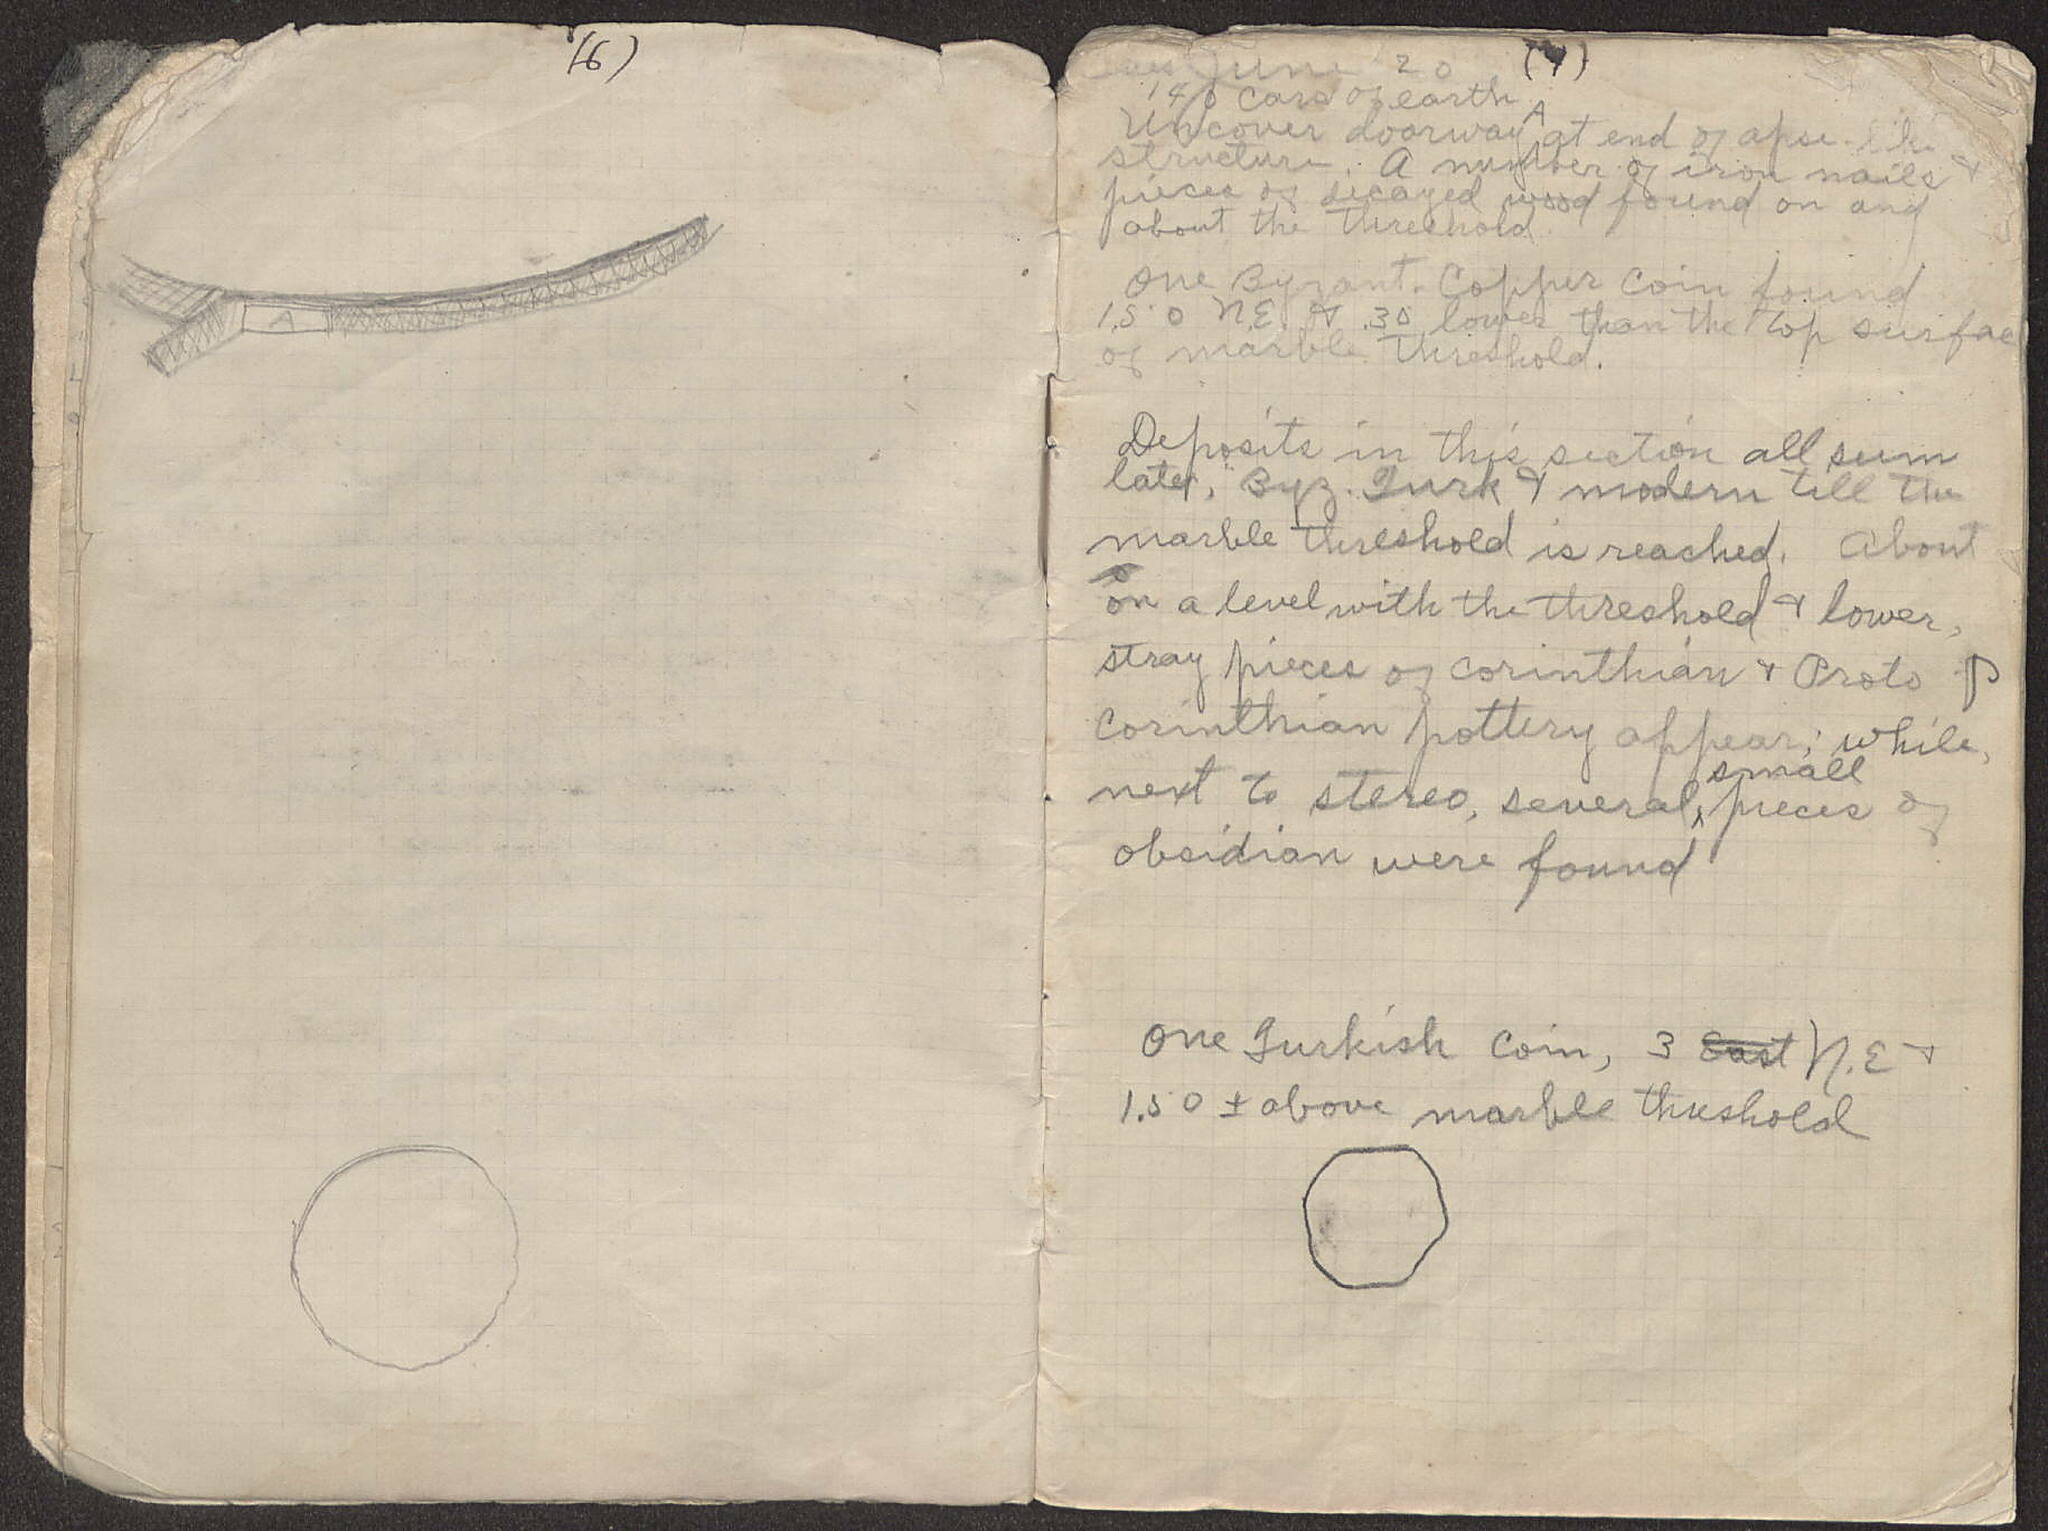 (6)
A
(7)
June 20
140 cars of earth
Uncover doorway A at end of apse-like
structure. A number of iron nails &
pieces of decayed wood found on and
about the threshold.
One Byzant. Copper Coin found
1.50 N.E. & .30 lower than the top surfac
of marble threshold.
Deposits in this section all seem
late, Byz. Turk & modern till the
marble threshold is reached. About
on a level with the threshold & lower,
stray pieces of Corinthian & Proto
Corinthian pottery appear; while,
next to stereo, several small pieces of
obsidian were found
One Turkish Coin, 3 East N.E &
1.50 ± above marble threshold